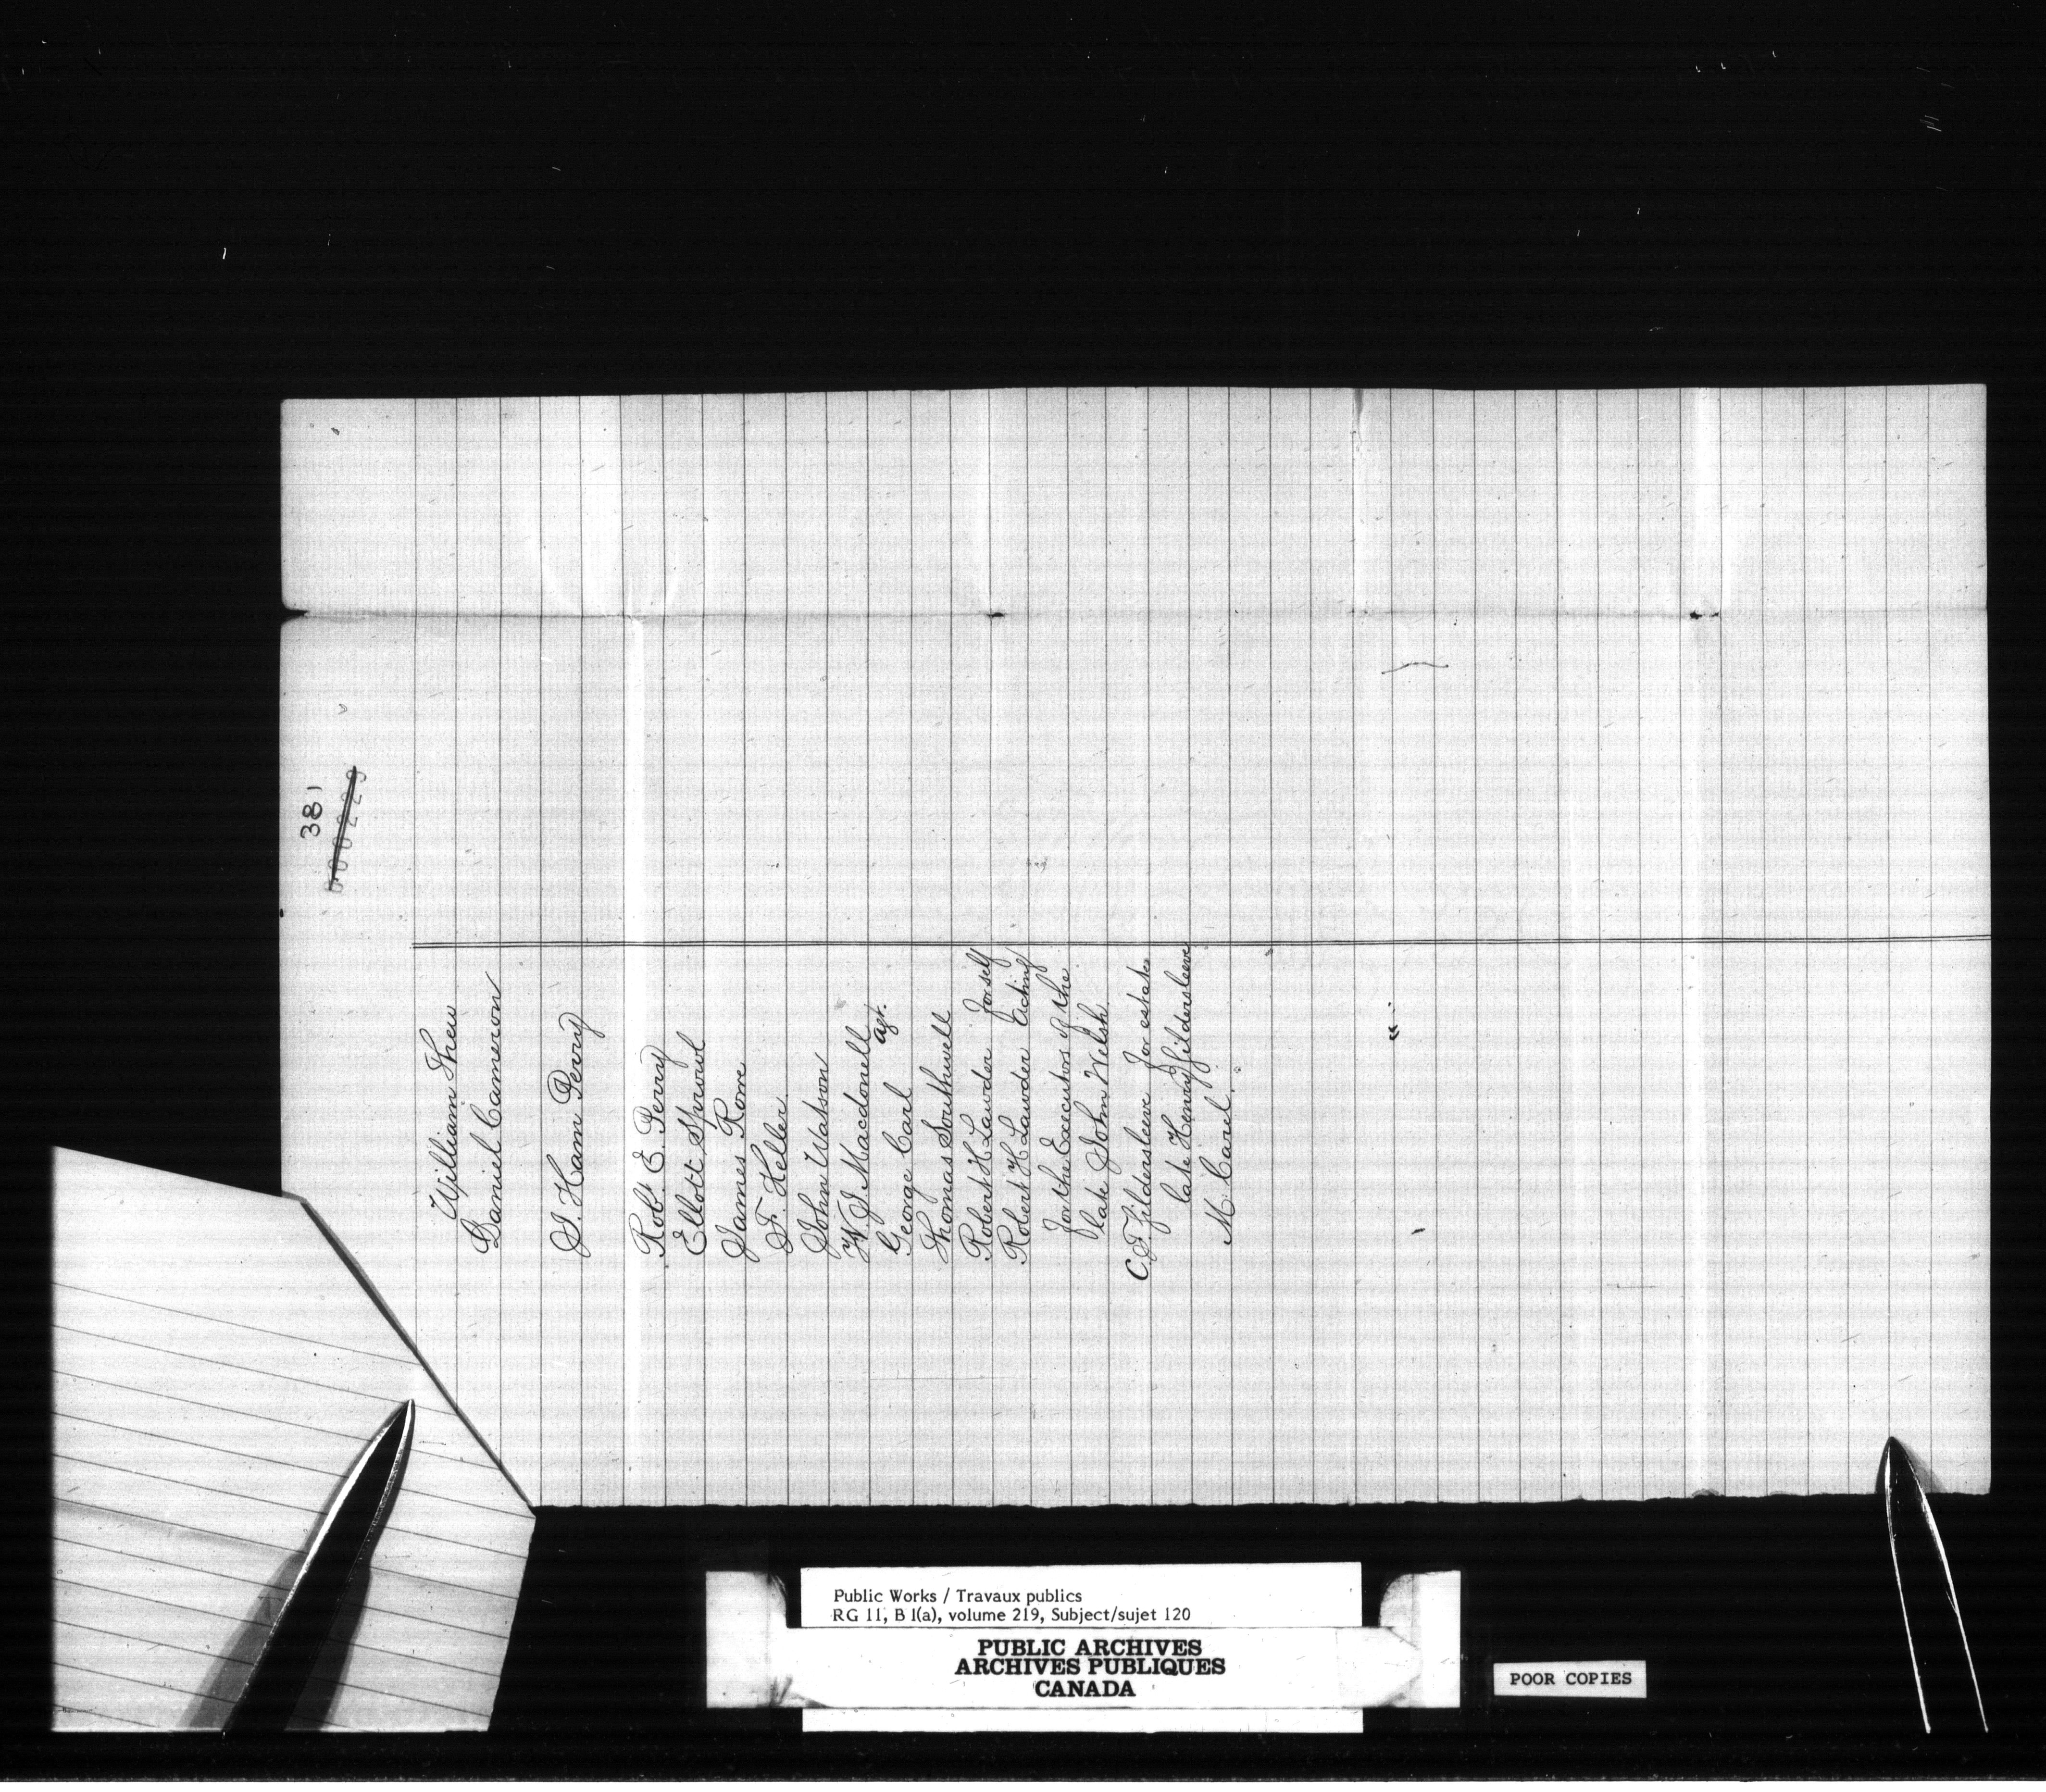 381
000229
William Shew
Daniel Cameron
J. Ham Perry
Robt. E. Perry
Ellott Sprowl
James Rowe
J. F. Heller
John Watson
W. J. Macdonell agt.
George Carl
Thomas Southwell
Robert H Lawder for self
Robert H Lawder Acting
for the Executors of the
late John Welsh
C. F. Gildersleeve for estate
late Henry Gildersleeve
M. Carel
Public Works / Travaux publics
RG 11, B 1(a), volume 219, Subject/sujet 120
PUBLIC ARCHIVES
ARCHIVES PUBLIQUES
CANADA
POOR COPIES